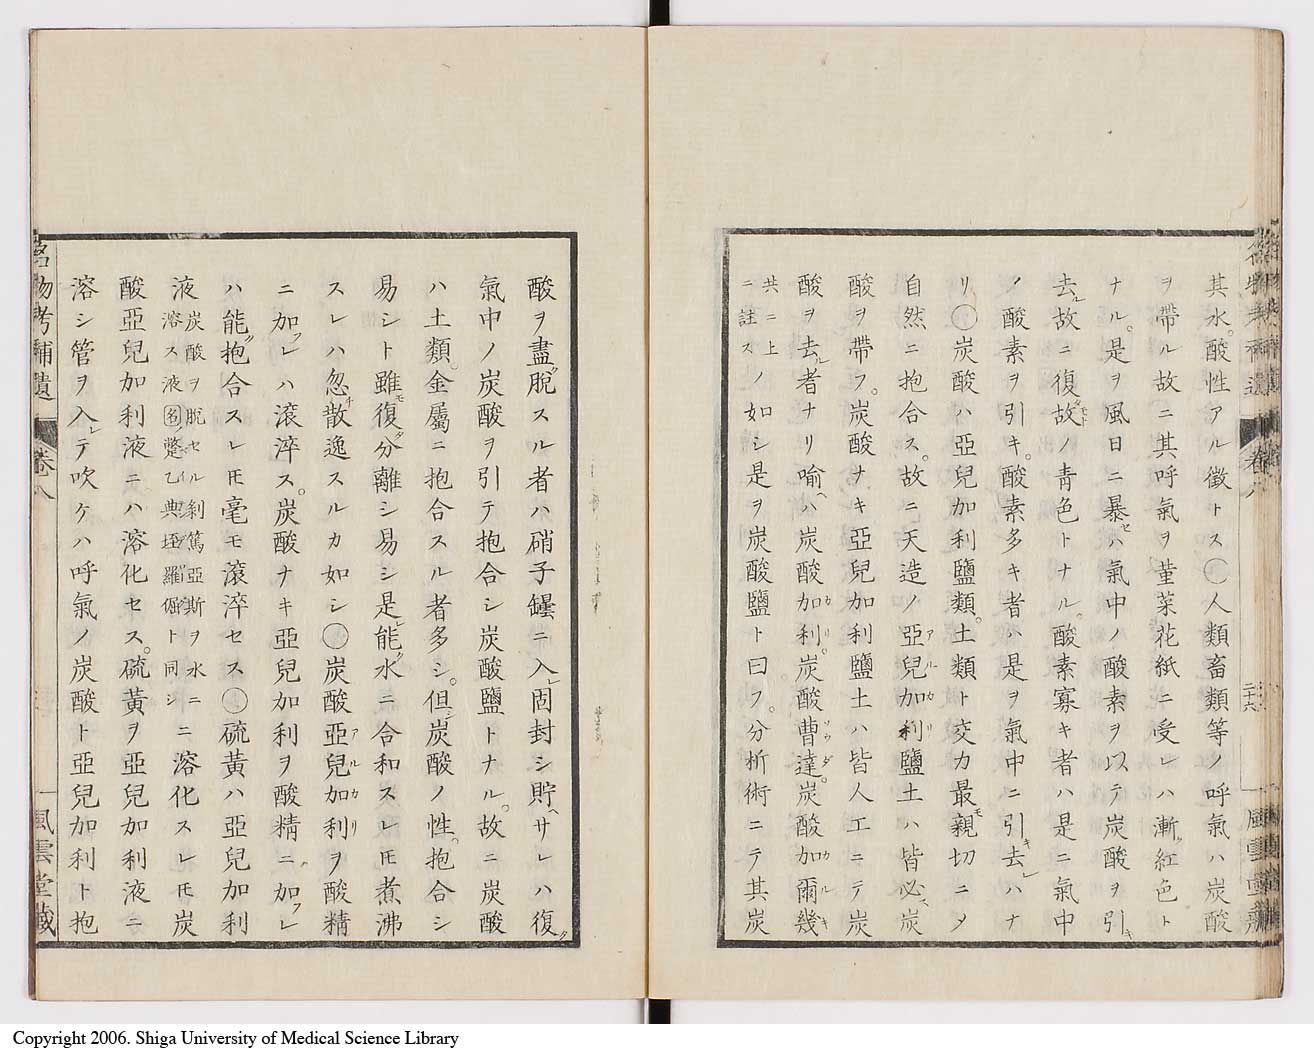 其水酸性アル徴トス〇人類畜類等ノ呼氣ハ炭酸
ヲ帶ル故ニ其呼氣ヲ菫菜花紙ニ受レハ漸紅色ト
ナル是ヲ風日ニ暴セハ氣中ノ酸素ヲ以テ炭酸ヲ引キ
去ル故ニ復故ノ青色トナル酸素寡キ者ハ是ニ氣中
ノ酸素ヲ引キ酸素多キ者ハ是ヲ氣中ニ引キ去レハナ
リ〇炭酸ハ亞兒加利鹽類土類ト交力最モ親切ニメ
自然ニ抱合ス故ニ天造ノ亞兒加利鹽土ハ皆必ス炭
酸ヲ帶フ炭酸ナキ亞兒加利鹽土ハ皆人工ニテ炭
酸ヲ去ル者ナリ喩ヘハ炭酸加利炭酸曹達炭酸加爾幾
共ニ上ニ註スノ如シ是ヲ炭酸鹽ト曰フ分析術ニテ其炭
酸ヲ盡ク脫スル者ハ硝子罎ニ入レ固封シ貯ヘサレハ復ク
氣中ノ炭酸ヲ引テ抱合シ炭酸鹽トナル故ニ炭酸
ハ土類金屬ニ抱合スル者多シ但シ炭酸ノ性ハ抱合シ
易シト雖モ復タ分離シ易シ是レ能ク水ニ合和スレ𪜈煮沸
スレハ忽チ散逸スルカ如シ〇炭酸亞兒加利ヲ酸精
ニ加フレハ滾淬ス炭酸ナキ亞兒加利ヲ酸精ニ加フレ
ハ能ク抱合スレ𪜈毫モ滾淬セス〇硫黄ハ亞兒加利
液炭酸ヲ脫セル剥篤亞斯ヲ水ニ溶ス液名蹩乙典垤羅倔ト同シニ溶化スレ𪜈炭
酸亞兒加利液ニハ溶化セス硫黄ヲ亞兒加利液ニ
溶シ管ヲ入レテ吹ケハ呼氣ノ炭酸ト亞兒加利ト抱
名物考補遺
卷八
風雲堂藏
Copyright 2006. Shiga University of Medical Science Library